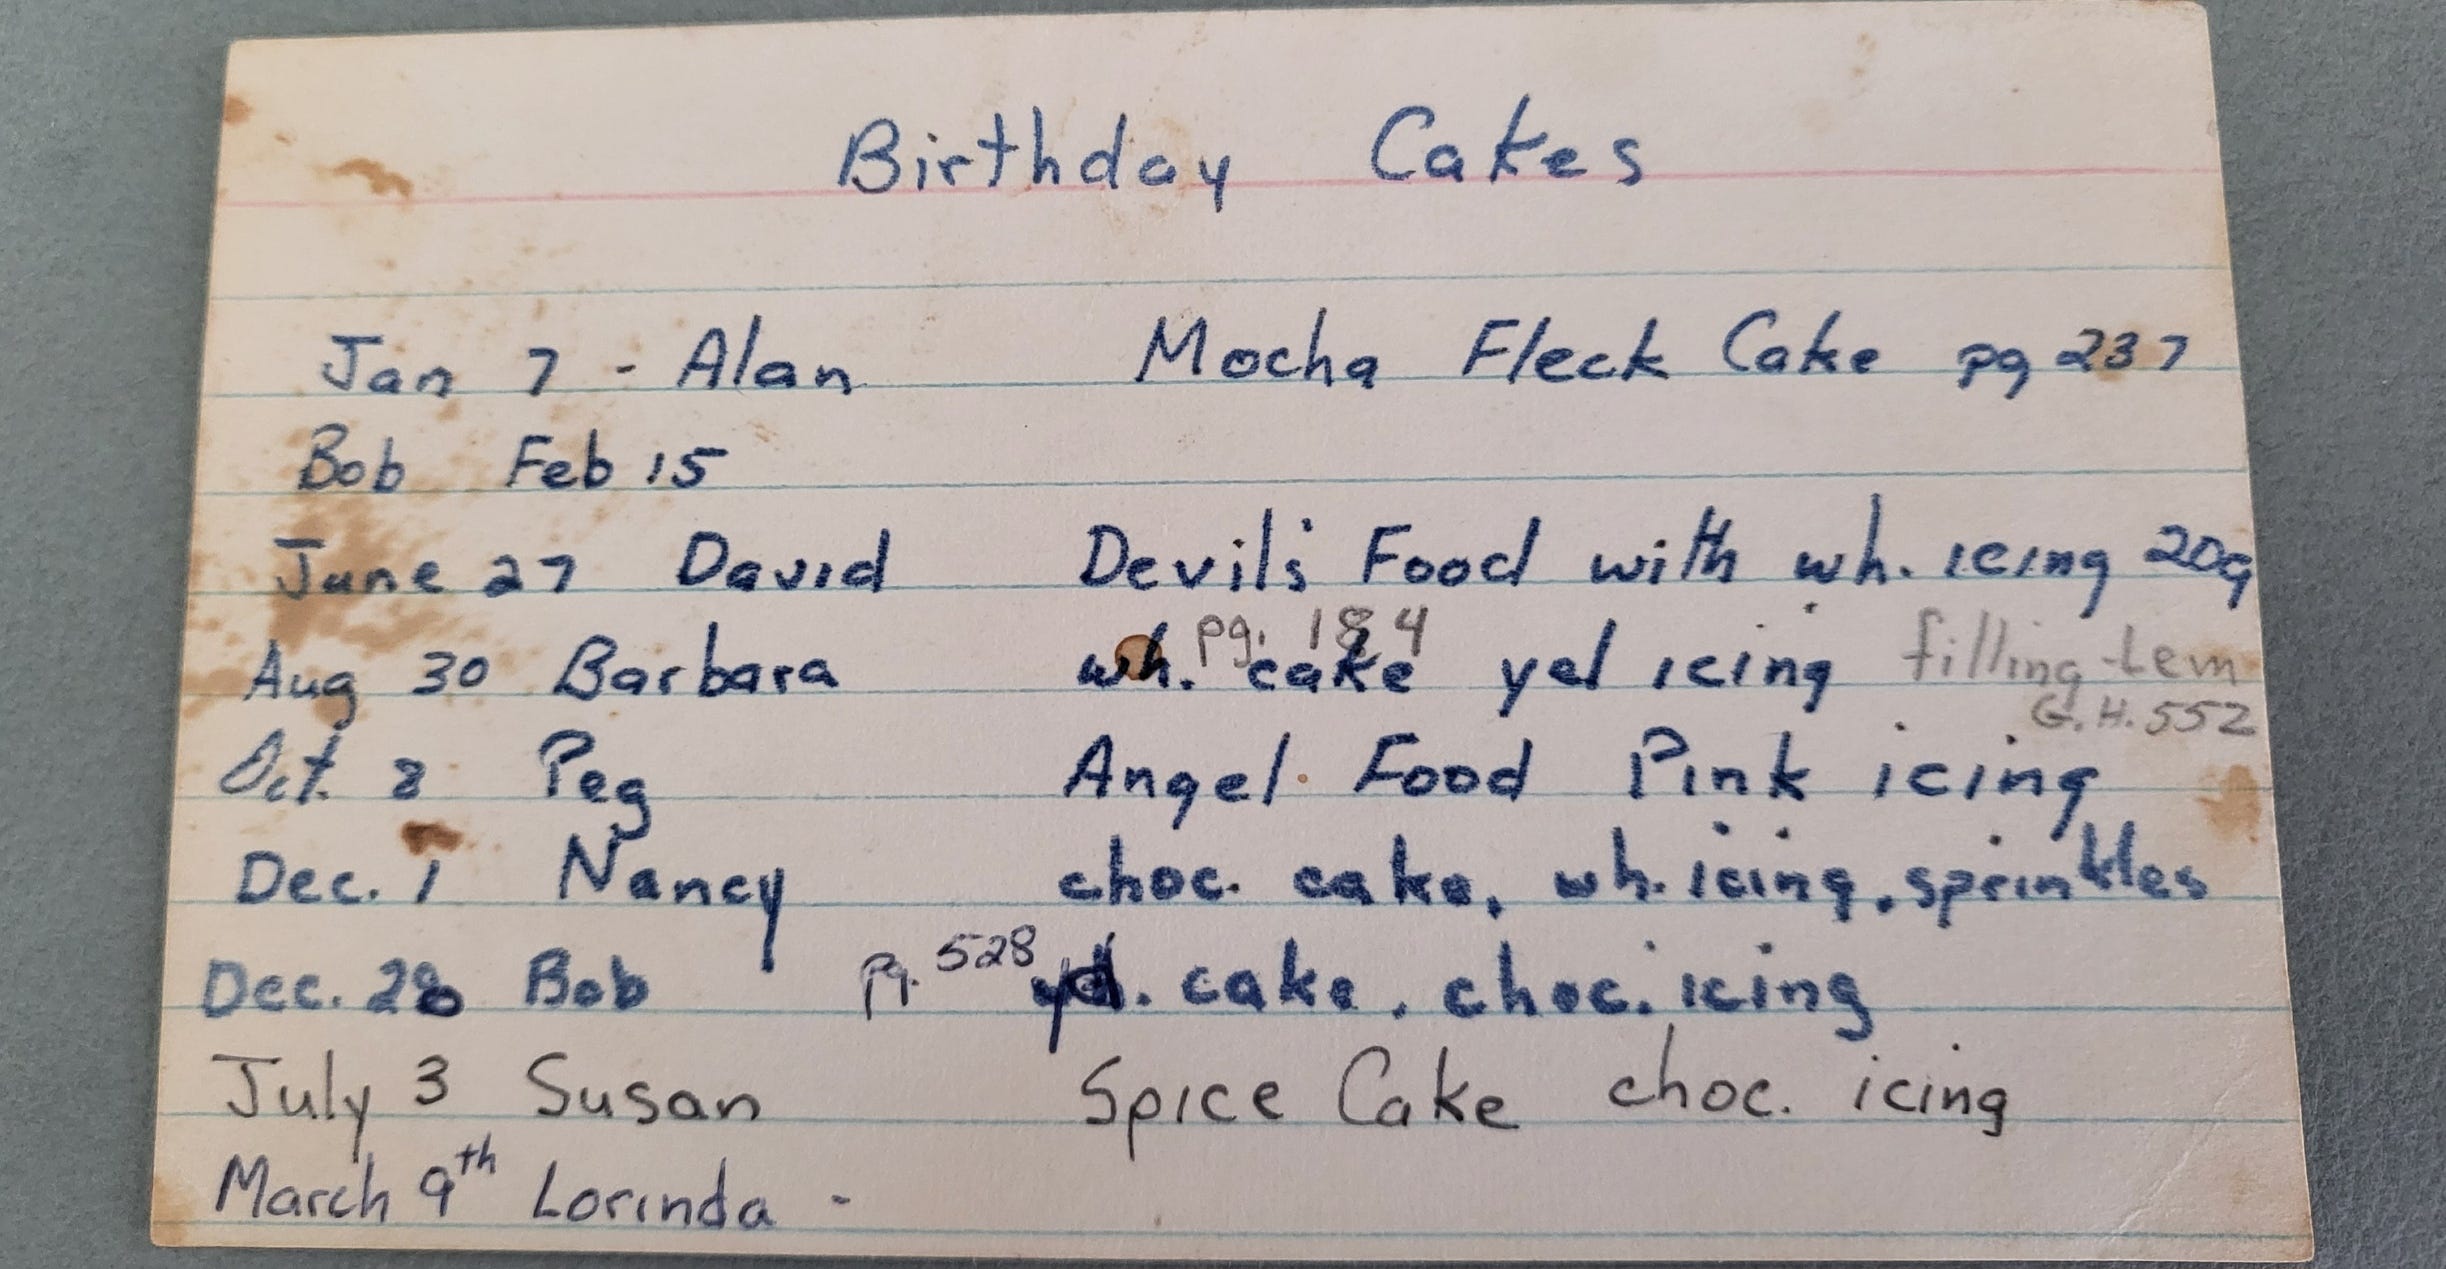 Birthday Cakes
Jan 7 - Alan Mocha Fleck Cake pg 237
Bob Feb 15
June 27 David Devil's Food with wh. icing 209
pg. 184
Aug 30 Barbara wh. cake yel icing filling-Lem
G.H. 552
Oct. 8 Peg Angel Food Pink icing
Dec. 1 Nancy choc. cake, wh. icing, sprinkles
pg. 528
Dec. Bob cake, choc. icing
July 3 Susan Spice Cake choc. icing
March 9th Lorinda -